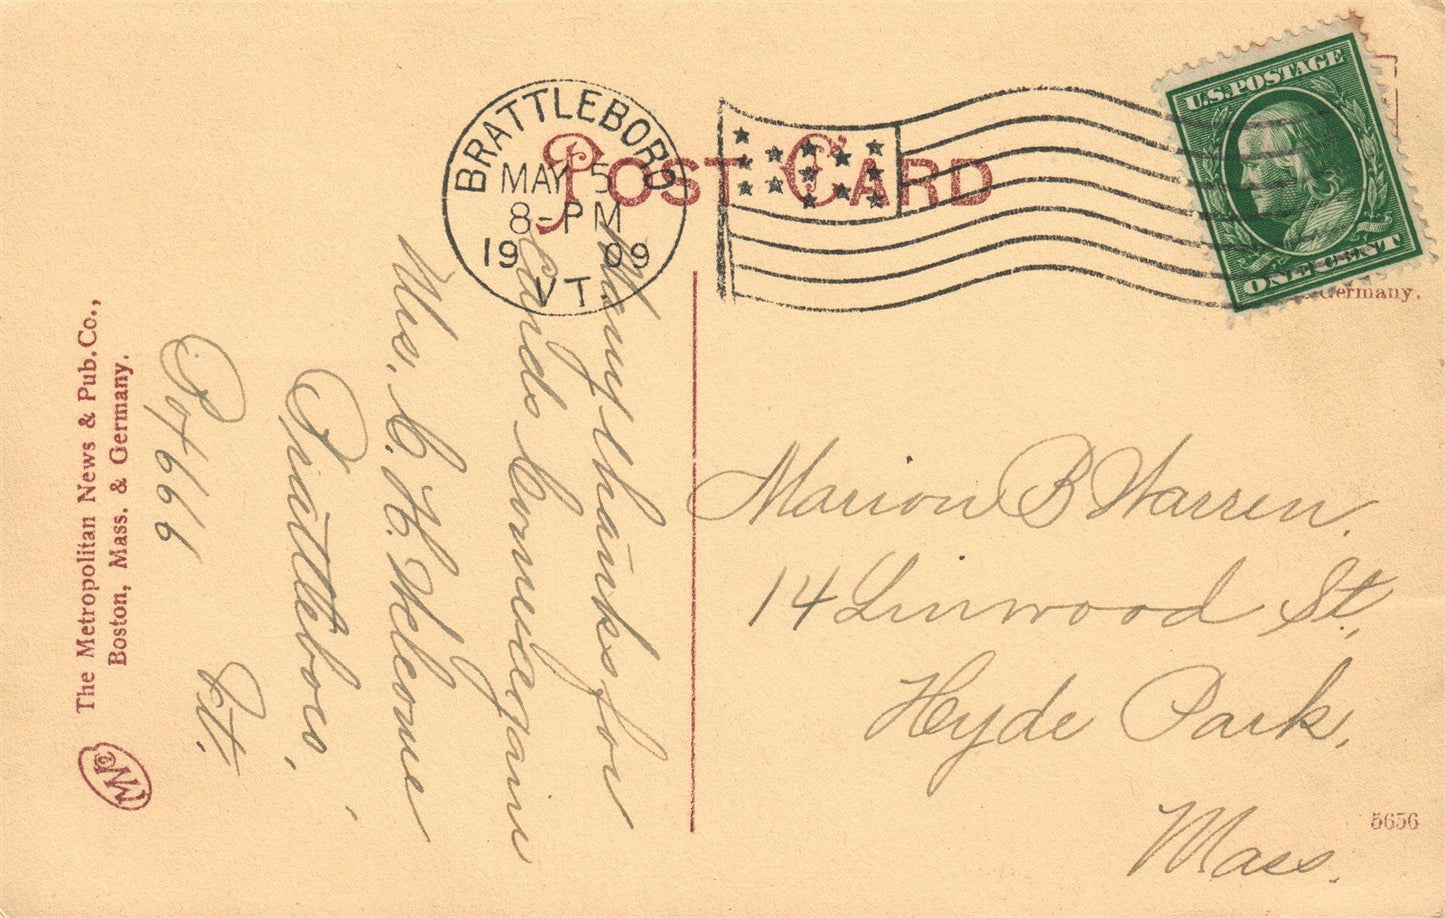 POST CARD
BRATTLEBORO
MAY 5
8-PM
1909
VT.
U.S. POSTAGE
ONE CENT
Germany.
Many thanks for
Cards Come again
Mrs. C. H. Welcome
Brattleboro,
Vt.
The Metropolitan News & Pub. Co.,
Boston, Mass. & Germany.
Marion B Warren.
14 Linwood St.,
Hyde Park,
Mass.
5656